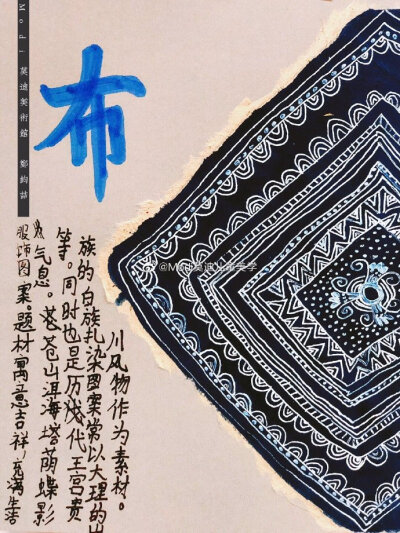 Modi 莫迪美術館 鄭鈞
布
川风物作为素材。
族的白族扎染图案常以大理的山
等。同时也是历戏代王宫贵
气息。苍苍山洱海塔荫蝶影
服饰图案。题材寓意吉祥,充满生活
@Modi莫迪儿童美学